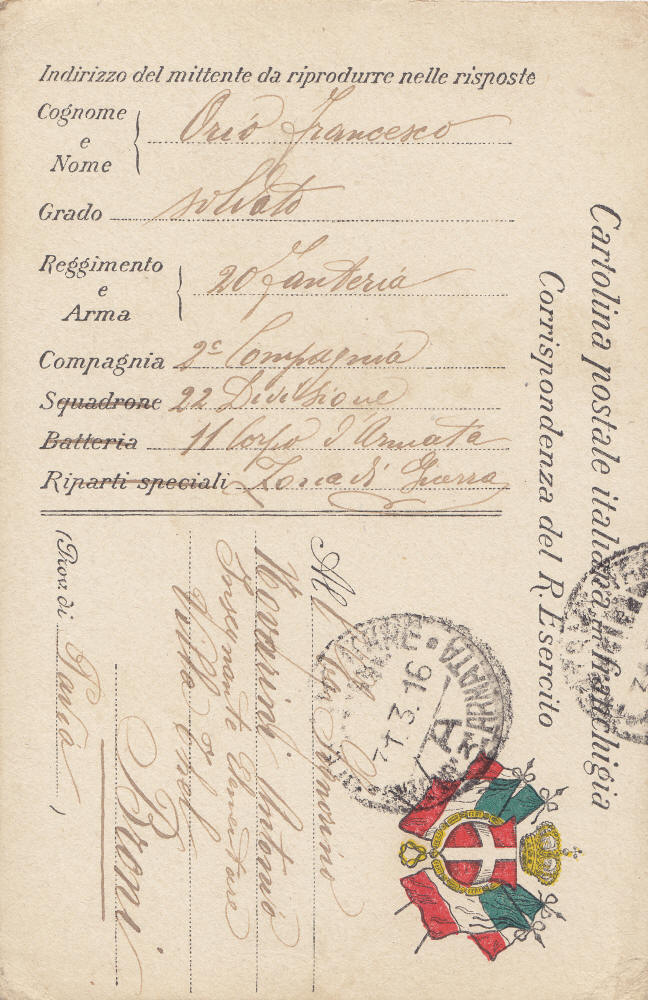 Indirizzo del mittente da riprodurre nelle risposte
Cognome e Nome Orio Francesco
Grado soldato
Reggimento e Arma 20 fanteria
Compagnia 2ª Compagnia
Squadrone 22 Divisione
Batteria 11 Corpo d'Armata
Riparti speciali Zona di Guerra
Cartolina postale italiana in franchigia
Corrispondenza del R. Esercito
Al
Antonio
Insegnante Elementare
Villa
Broni
(Prov. di Pavia)
ARMATA
A
.3.16